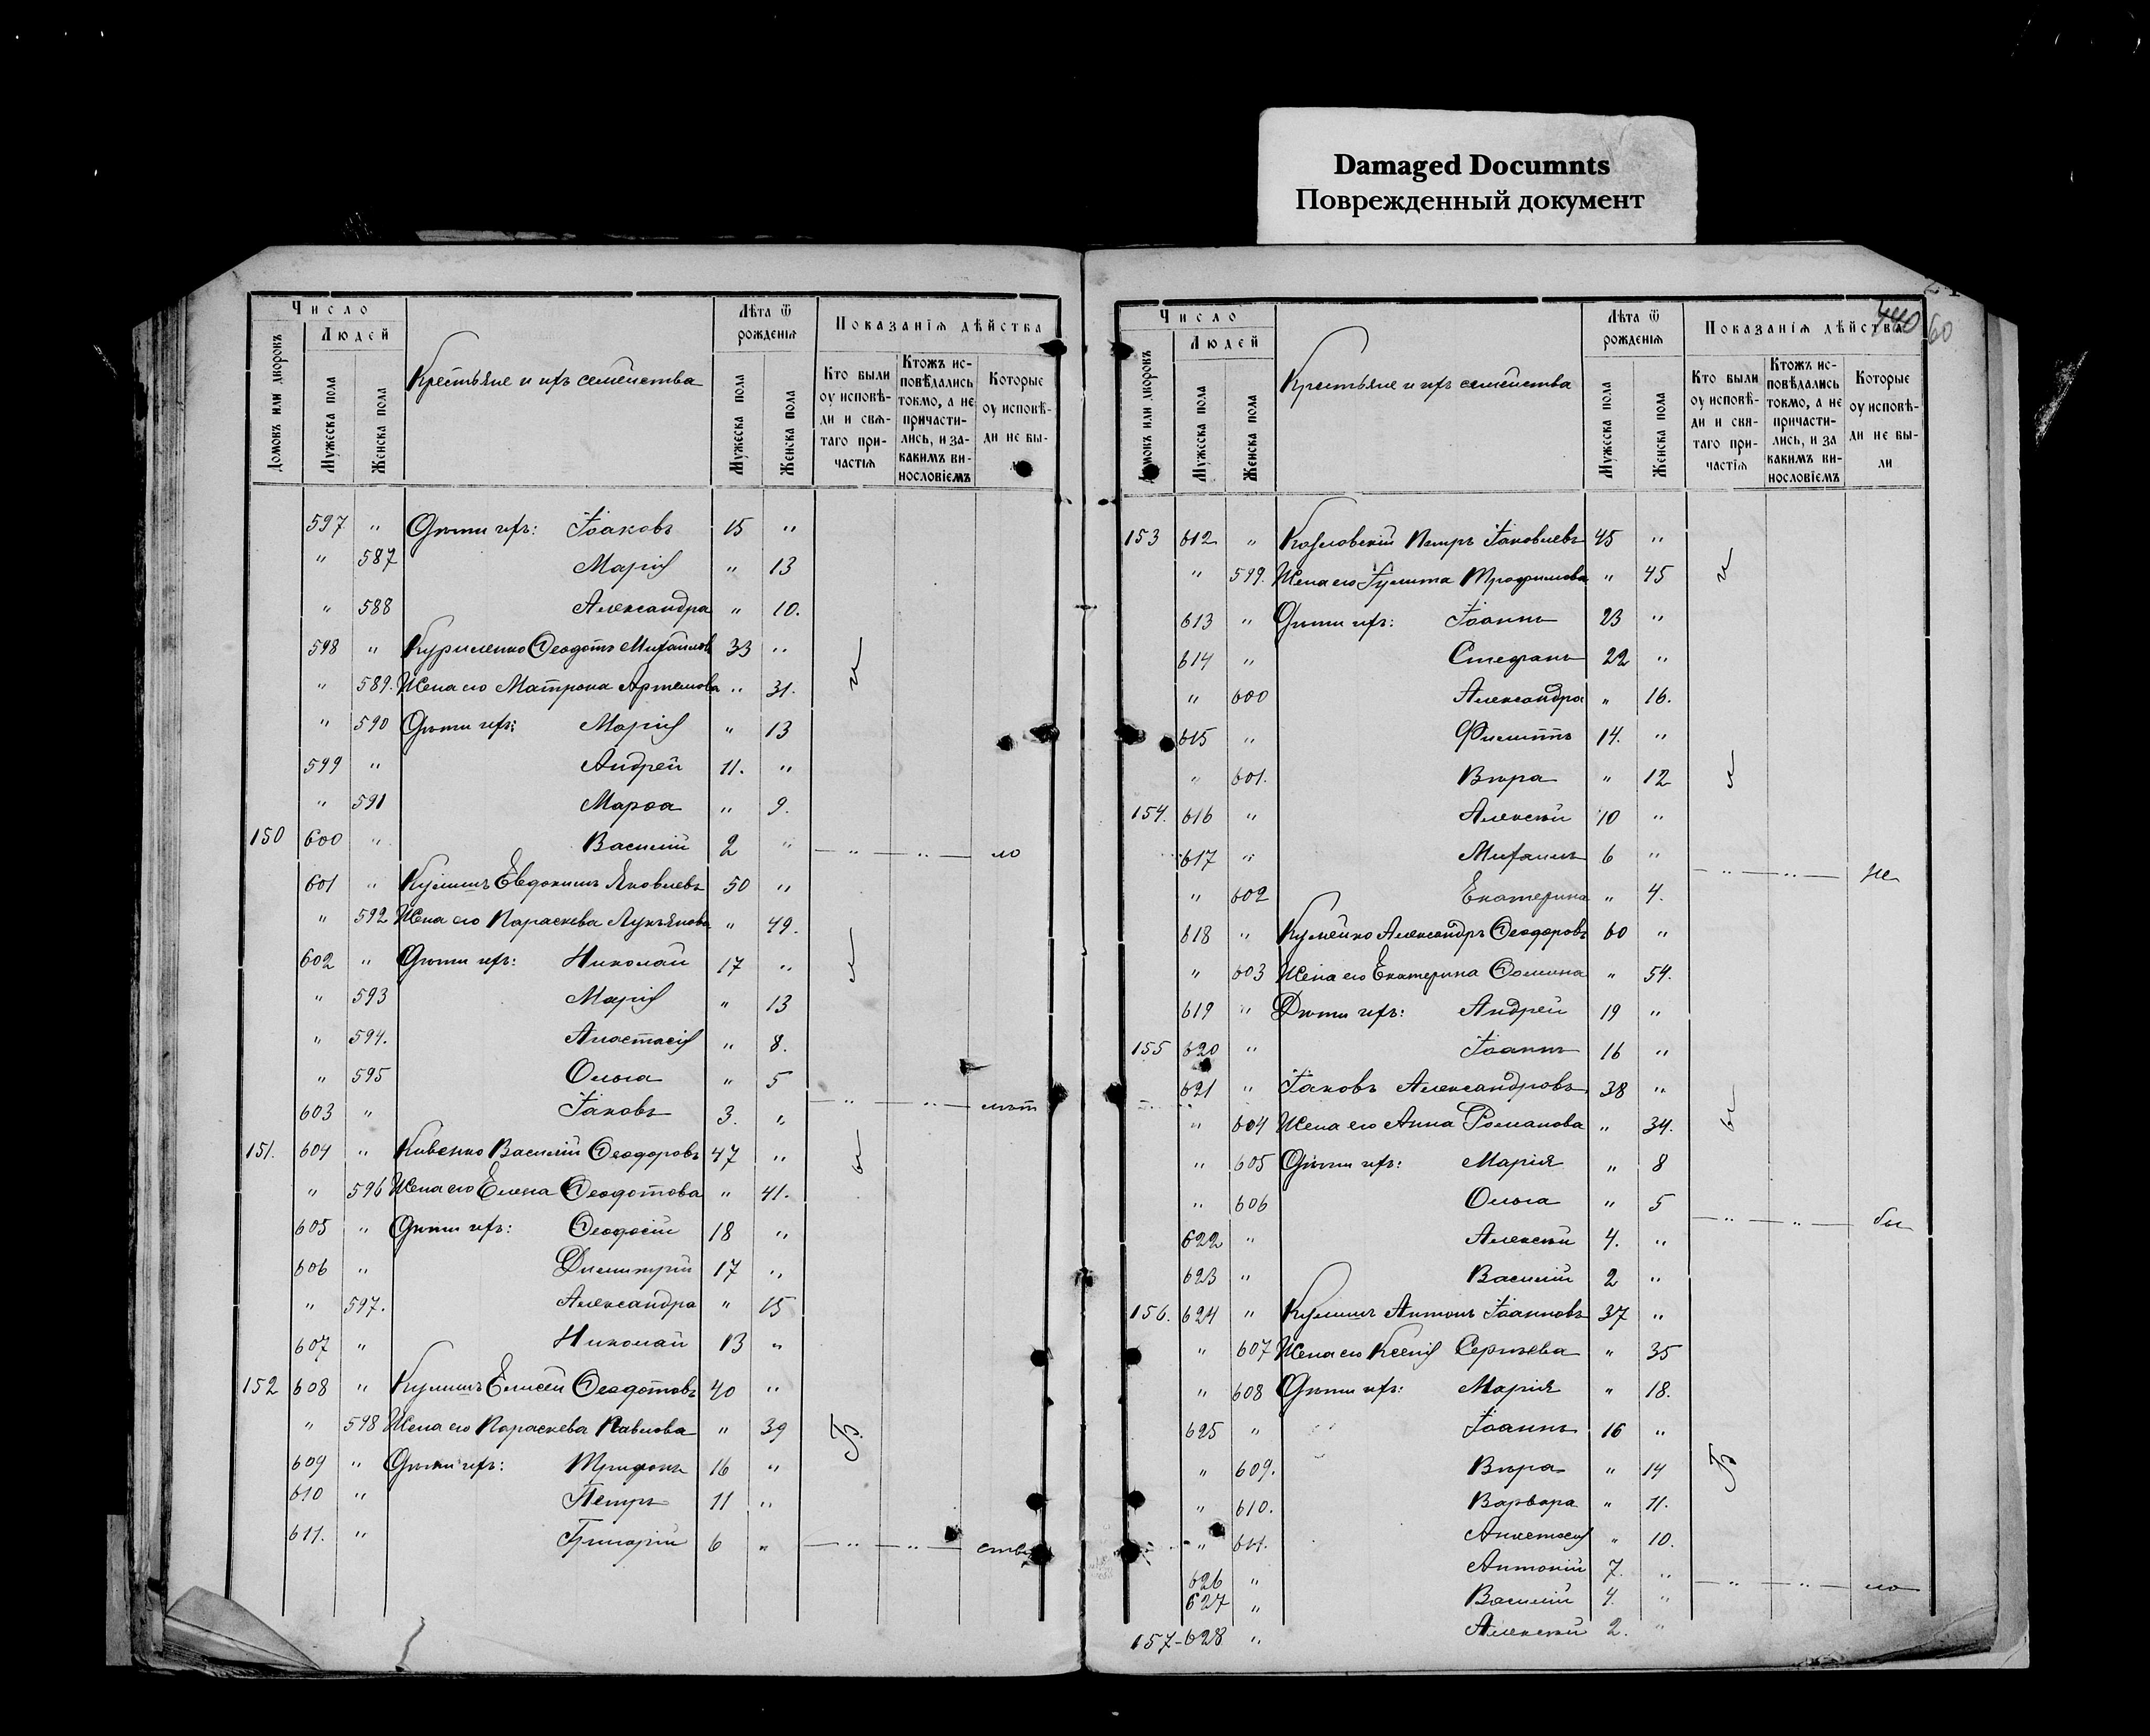 Damaged Documnts
Поврежденный документ
Число
Людей
Домовъ или дворовъ
Мужеска пола
Женска пола
Крестьяне и ихъ семейства
Лѣта ѿ рожденія
Мужеска пола
Женска пола
Показанія дѣйства
Кто были оу исповѣ-
ди и свѧ-
таго при-
частіѧ
Ктожъ ис-
повѣдались
токмо, а не
причасти-
лись, и за-
какимъ ви-
нословіемъ
Которые
оу исповѣ-
ди не бы-
597 " Дѣти ихъ: Іоаковъ 15 "
" 587 Марія " 13
" 588 Александра " 10.
598 " Куриленко Ѳеодотъ Михаиловъ 33 "
" 589. Жена его Матрона Артемова " 31.
" 590 Дѣти ихъ: Марія " 13
599 " Андрей 11. "
" 591 Марѳа " 9.
150 600 " Василій 2 " — " — " — ло
601 " Кулишъ Евдокимъ Яковлевъ 50 "
" 592 Жена его Параскева Лукьянова " 49.
602 " Дѣти ихъ: Николай 17 "
" 593 Марія " 13
" 594. Анастасія " 8.
" 595 Ольга " 5
603 " Іаковъ 3. " — " — " — лѣт
151. 604 " Кивенко Василій Ѳеодоровъ 47 "
" 596 Жена его Елена Ѳеодотова " 41.
605 " Дѣти ихъ: Ѳеодосій 18 "
606 " Димитрій 17 "
" 597. Александра " 15
607 " Николай 13 "
152 608 " Кулишъ Елисей Ѳеодотовъ 40 "
" 598 Жена его Параскева Павлова " 39
609 " Дѣти ихъ: Трифонъ 16 "
610 " Петръ 11 "
611. " Григорій 6 " — " — " —
440 60
Число
Людей
Домовъ или дворовъ
Мужеска пола
Женска пола
Крестьяне и ихъ семейства
Лѣта ѿ рожденія
Мужеска пола
Женска пола
Показанія дѣйства
Кто были
оу исповѣ-
ди и свѧ-
таго при-
частіѧ
Ктожъ ис-
повѣдались
токмо, а не
причасти-
лись, и за
какимъ ви-
нословіемъ
Которые
оу исповѣ-
ди не бы-
ли
153 612 " Козловскій Петръ Іаковлевъ 45 "
" 599. Жена его Іулита Трофимова " 45
613 " Дѣти ихъ: Іоаннъ 23 "
614 " Стефанъ 22 "
" 600 Александра " 16.
615 " Филиппъ 14. "
" 601. Вѣра " 12
154. 616 " Алексѣй 10 "
617 " Михаилъ 6 " — " — " — не
" 602 Екатерина " 4.
618 " Кулейко Александръ Ѳеодоровъ 60 "
" 603 Жена его Екатерина Ѳомина " 54.
619 " Дѣти ихъ: Андрей 19 "
155 620 " Іоаннъ 16 "
621 " Іаковъ Александровъ 38 "
" 604 Жена его Анна Романова " 34.
" 605 Дѣти ихъ: Марія " 8
" 606 Ольга " 5 — " — " — бы
622 " Алексѣй 4. "
623 " Василій 2 "
156. 624 " Кулишъ Антонъ Іоанновъ 37 "
" 607 Жена его Ксенія Сергѣева " 35
" 608 Дѣти ихъ: Марія " 18.
625 " Іоаннъ 16 "
" 609. Вѣра " 14
" 610. Варвара " 11.
" 611. Анастасія " 10.
626 " Антоній 7. " — " — " — ло
627 " Василій 4. "
157- 628 " Алексѣй 2. "